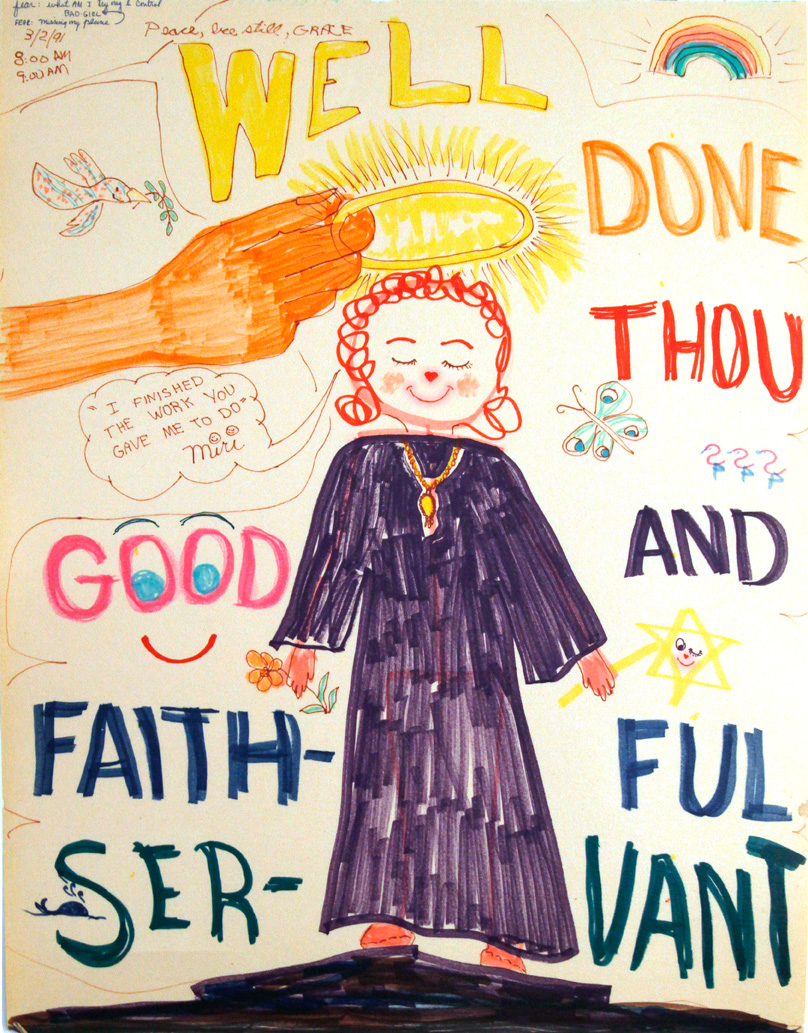 fear: what AM I try ing to Control
BAD-GIRL
FEAR: Missing my plane
3/2/91
8:00 AM
9:00 AM
Peace, bee still, GRACE
WELL
DONE
THOU
"I FINISHED
THE WORK YOU
GAVE ME TO DO"
Miri
GOOD
AND
FAITH-
FUL
SER-
VANT